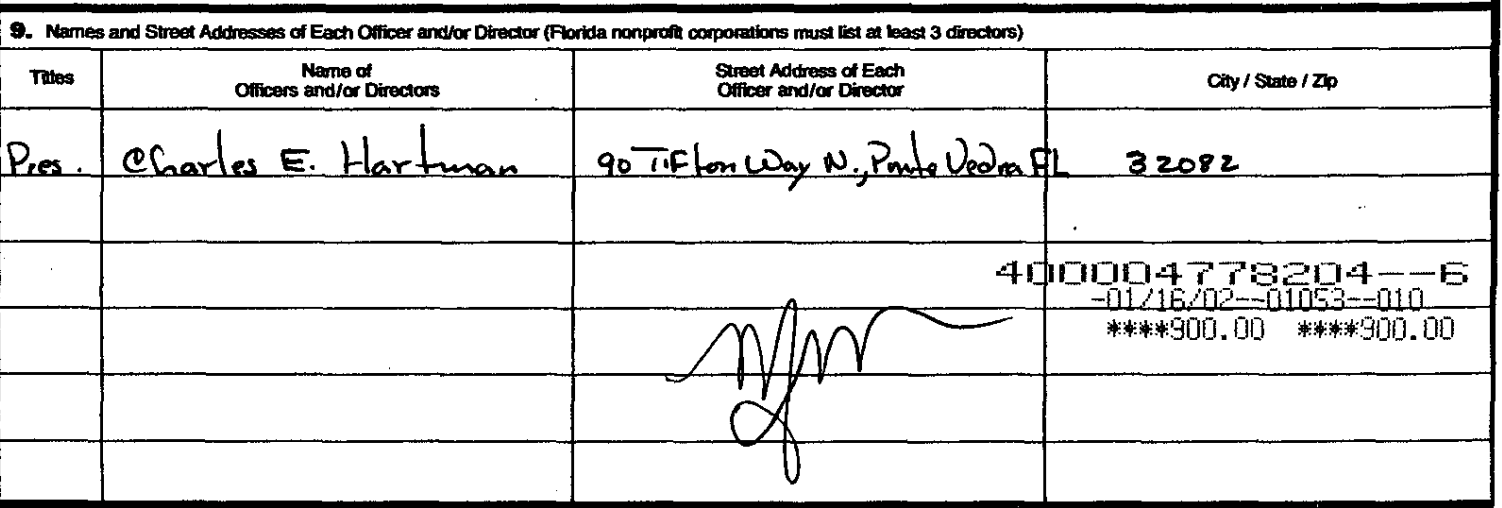 9. Names and Street Addresses of Each Officer and/or Director (Florida nonprofit corporations must list at least 3 directors)
Titles
Name of
Officers and/or Directors
Street Address of Each
Officer and/or Director
City / State / Zip
Pres. Charles E. Hartman 90 Tifton Way N., Ponte Vedra FL 32082
400004778204--6
-01/16/02--01053--010
****900.00 ****900.00